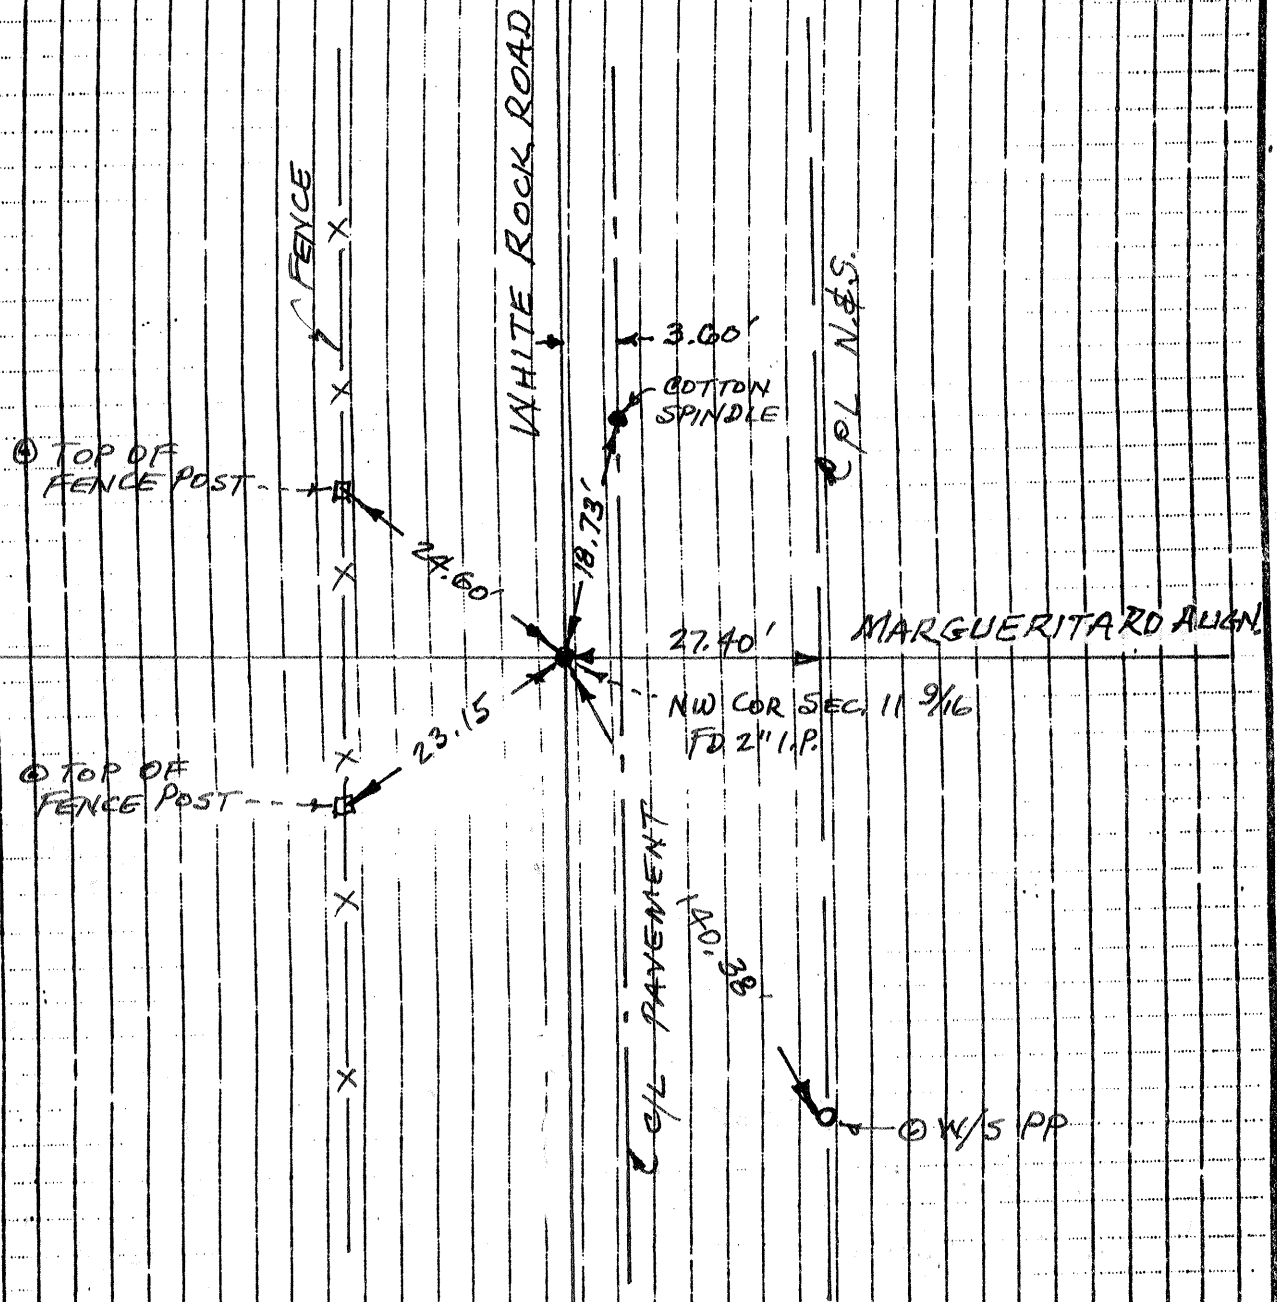 WHITE ROCK ROAD
FENCE
3.60'
COTTON
SPINDLE
PL N.&S.
TOP OF
FENCE POST
24.60'
18.73'
27.40'
MARGUERITA RD ALIGN.
NW COR SEC. 11 9/16
FD 2" I.P.
23.15
TOP OF
FENCE POST
C/L PAVEMENT
W/S PP